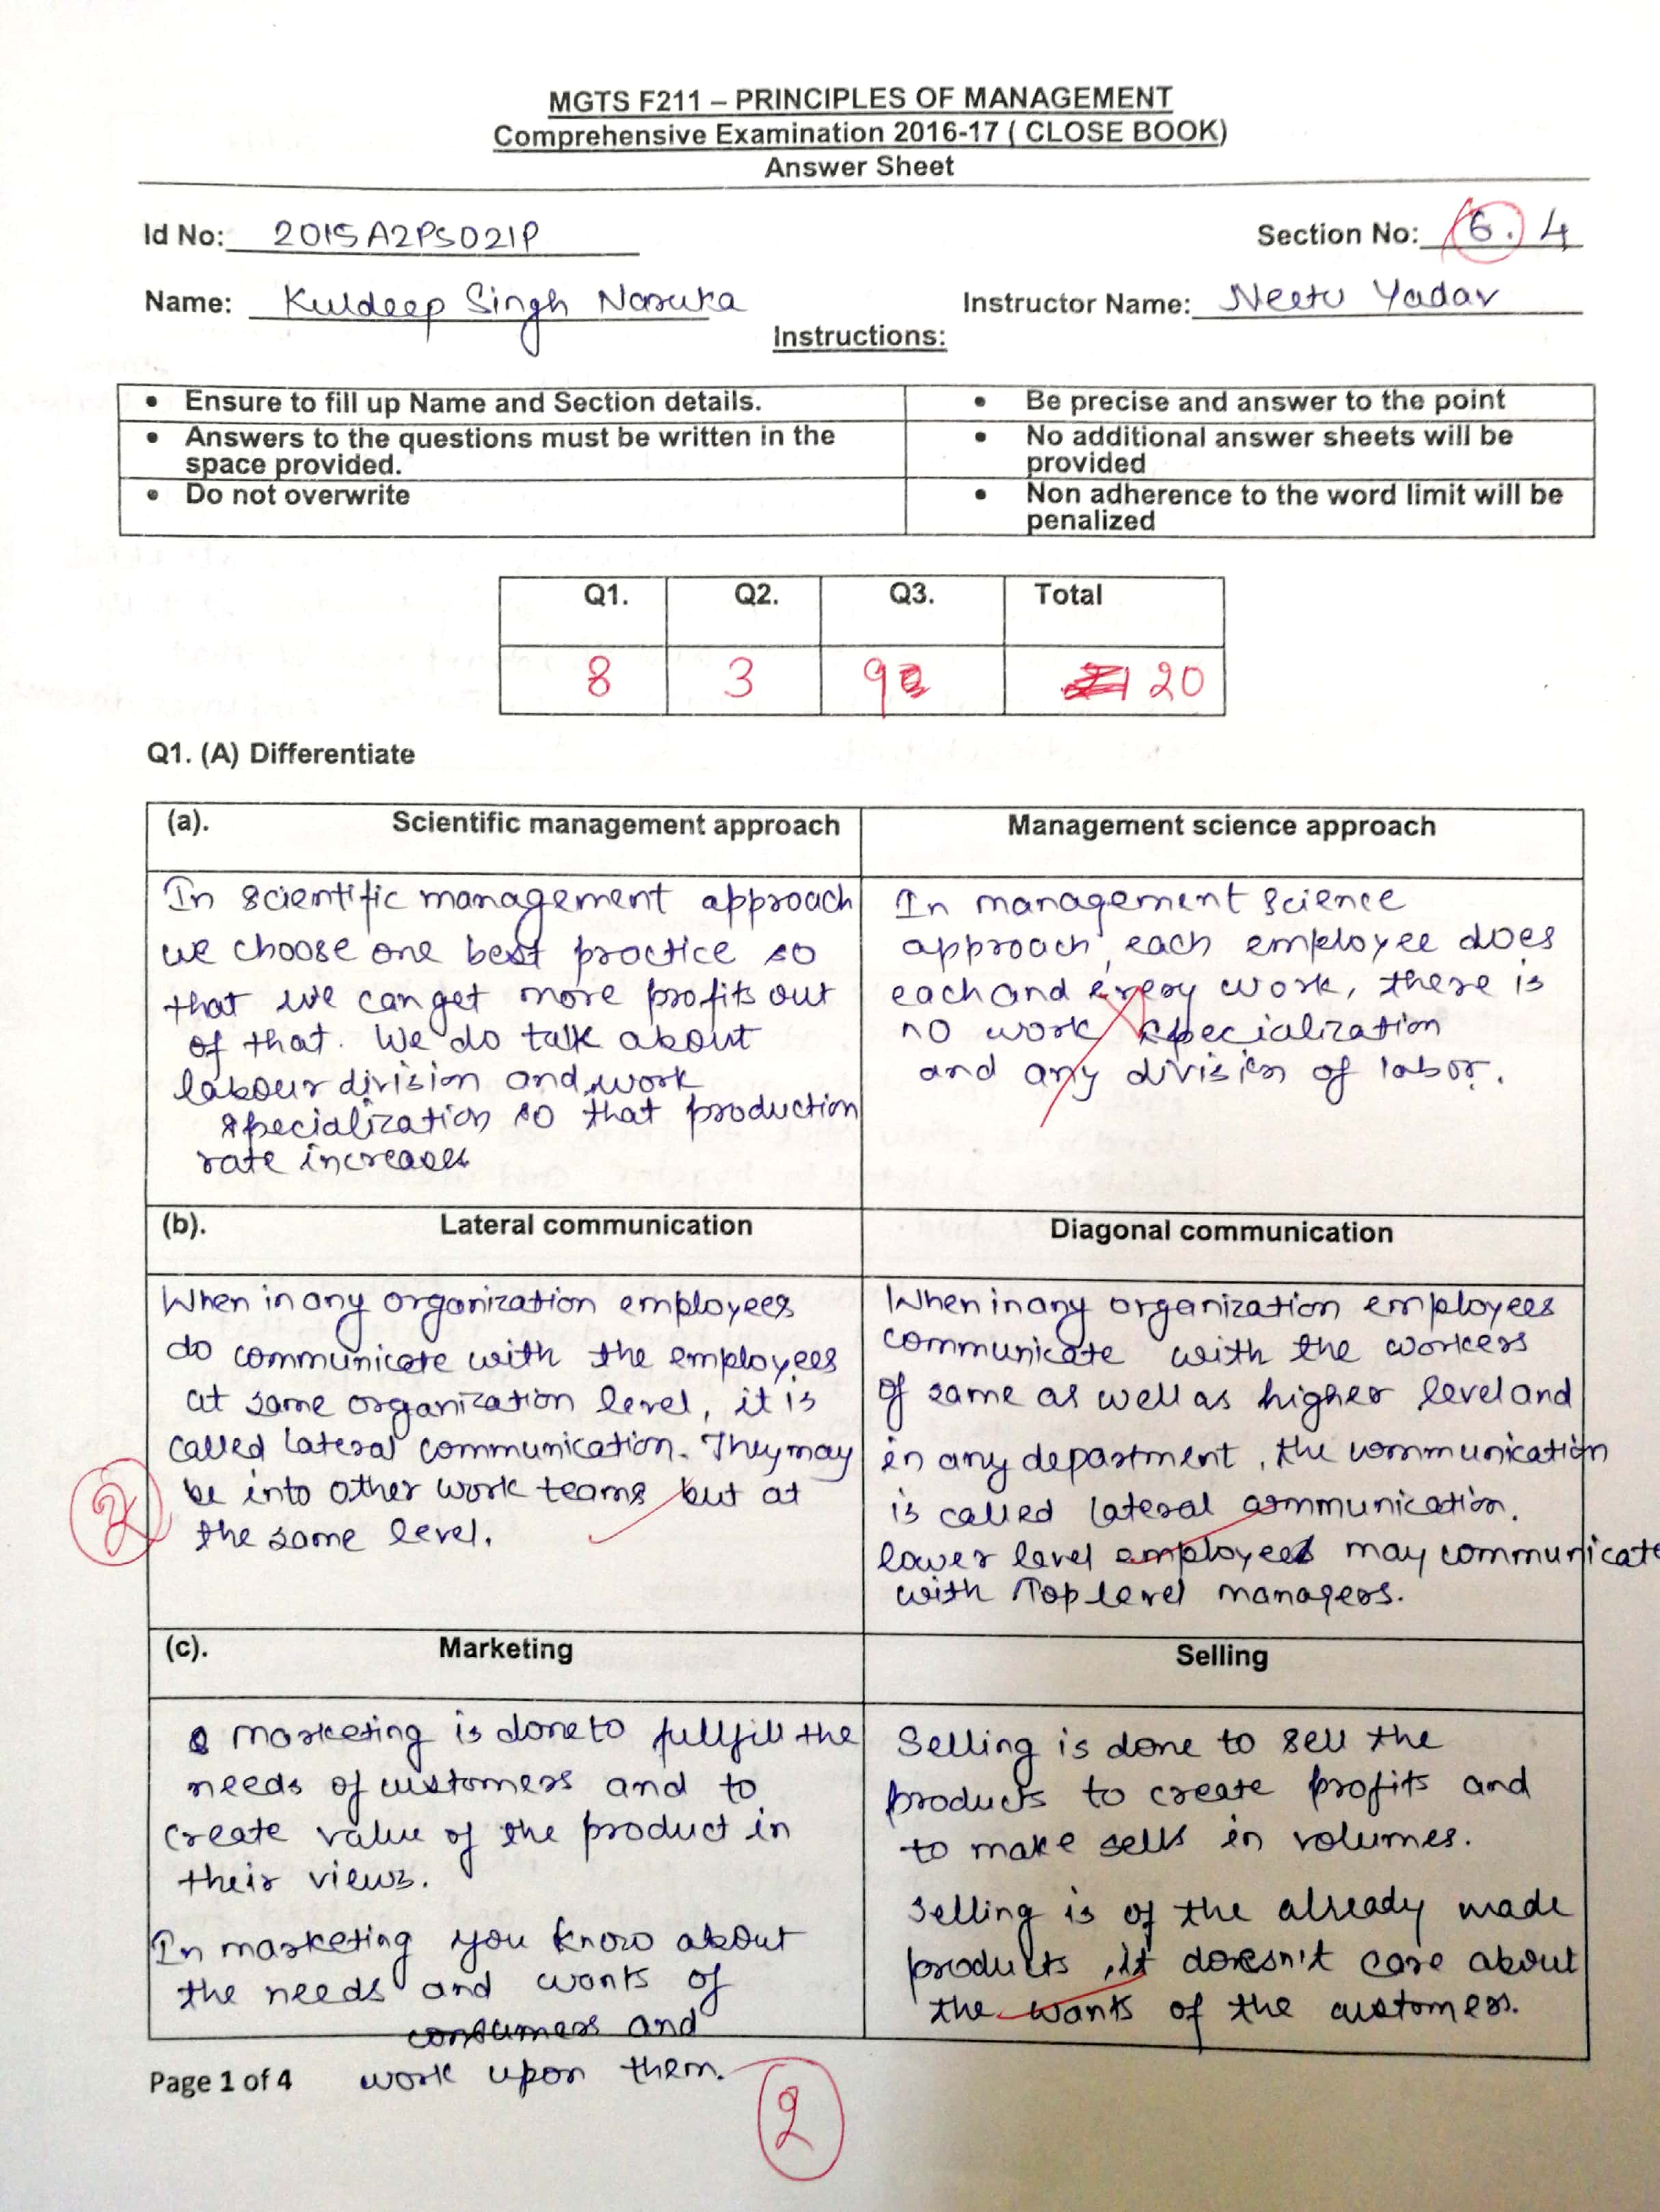 MGTS F211 – PRINCIPLES OF MANAGEMENT
Comprehensive Examination 2016-17 ( CLOSE BOOK)
Answer Sheet
Id No: 2015A2PS021P
Section No: 6. 4
Name: Kuldeep Singh Naruka
Instructor Name: Neetu Yadav
Instructions:
• Ensure to fill up Name and Section details.
• Be precise and answer to the point
• Answers to the questions must be written in the
space provided.
• No additional answer sheets will be
provided
• Do not overwrite
• Non adherence to the word limit will be
penalized
Q1. Q2. Q3. Total
8 3 9 20
Q1. (A) Differentiate
(a). Scientific management approach
Management science approach
In scientific management approach
we choose one best practice so
that we can get more profits out
of that. We do talk about
labour division and work
specialization so that production
rate increases
In management science
approach, each employee does
each and every work, there is
no work specialization
and any division of labor.
(b). Lateral communication
Diagonal communication
When in any organization employees
do communicate with the employees
at same organization level, it is
called lateral communication. They may
be into other work teams but at
the same level.
2
When in any organization employees
communicate with the workers
of same as well as higher level and
in any department, the communication
is called lateral communication.
lower level employees may communicate
with Top level managers.
(c). Marketing
Selling
marketing is done to fullfill the
needs of customers and to
create value of the product in
their views.
In marketing you know about
the needs and wants of
consumers and
work upon them.
Selling is done to sell the
products to create profits and
to make sells in volumes.
Selling is of the already made
products, it doesn't care about
the wants of the customers.
Page 1 of 4
2